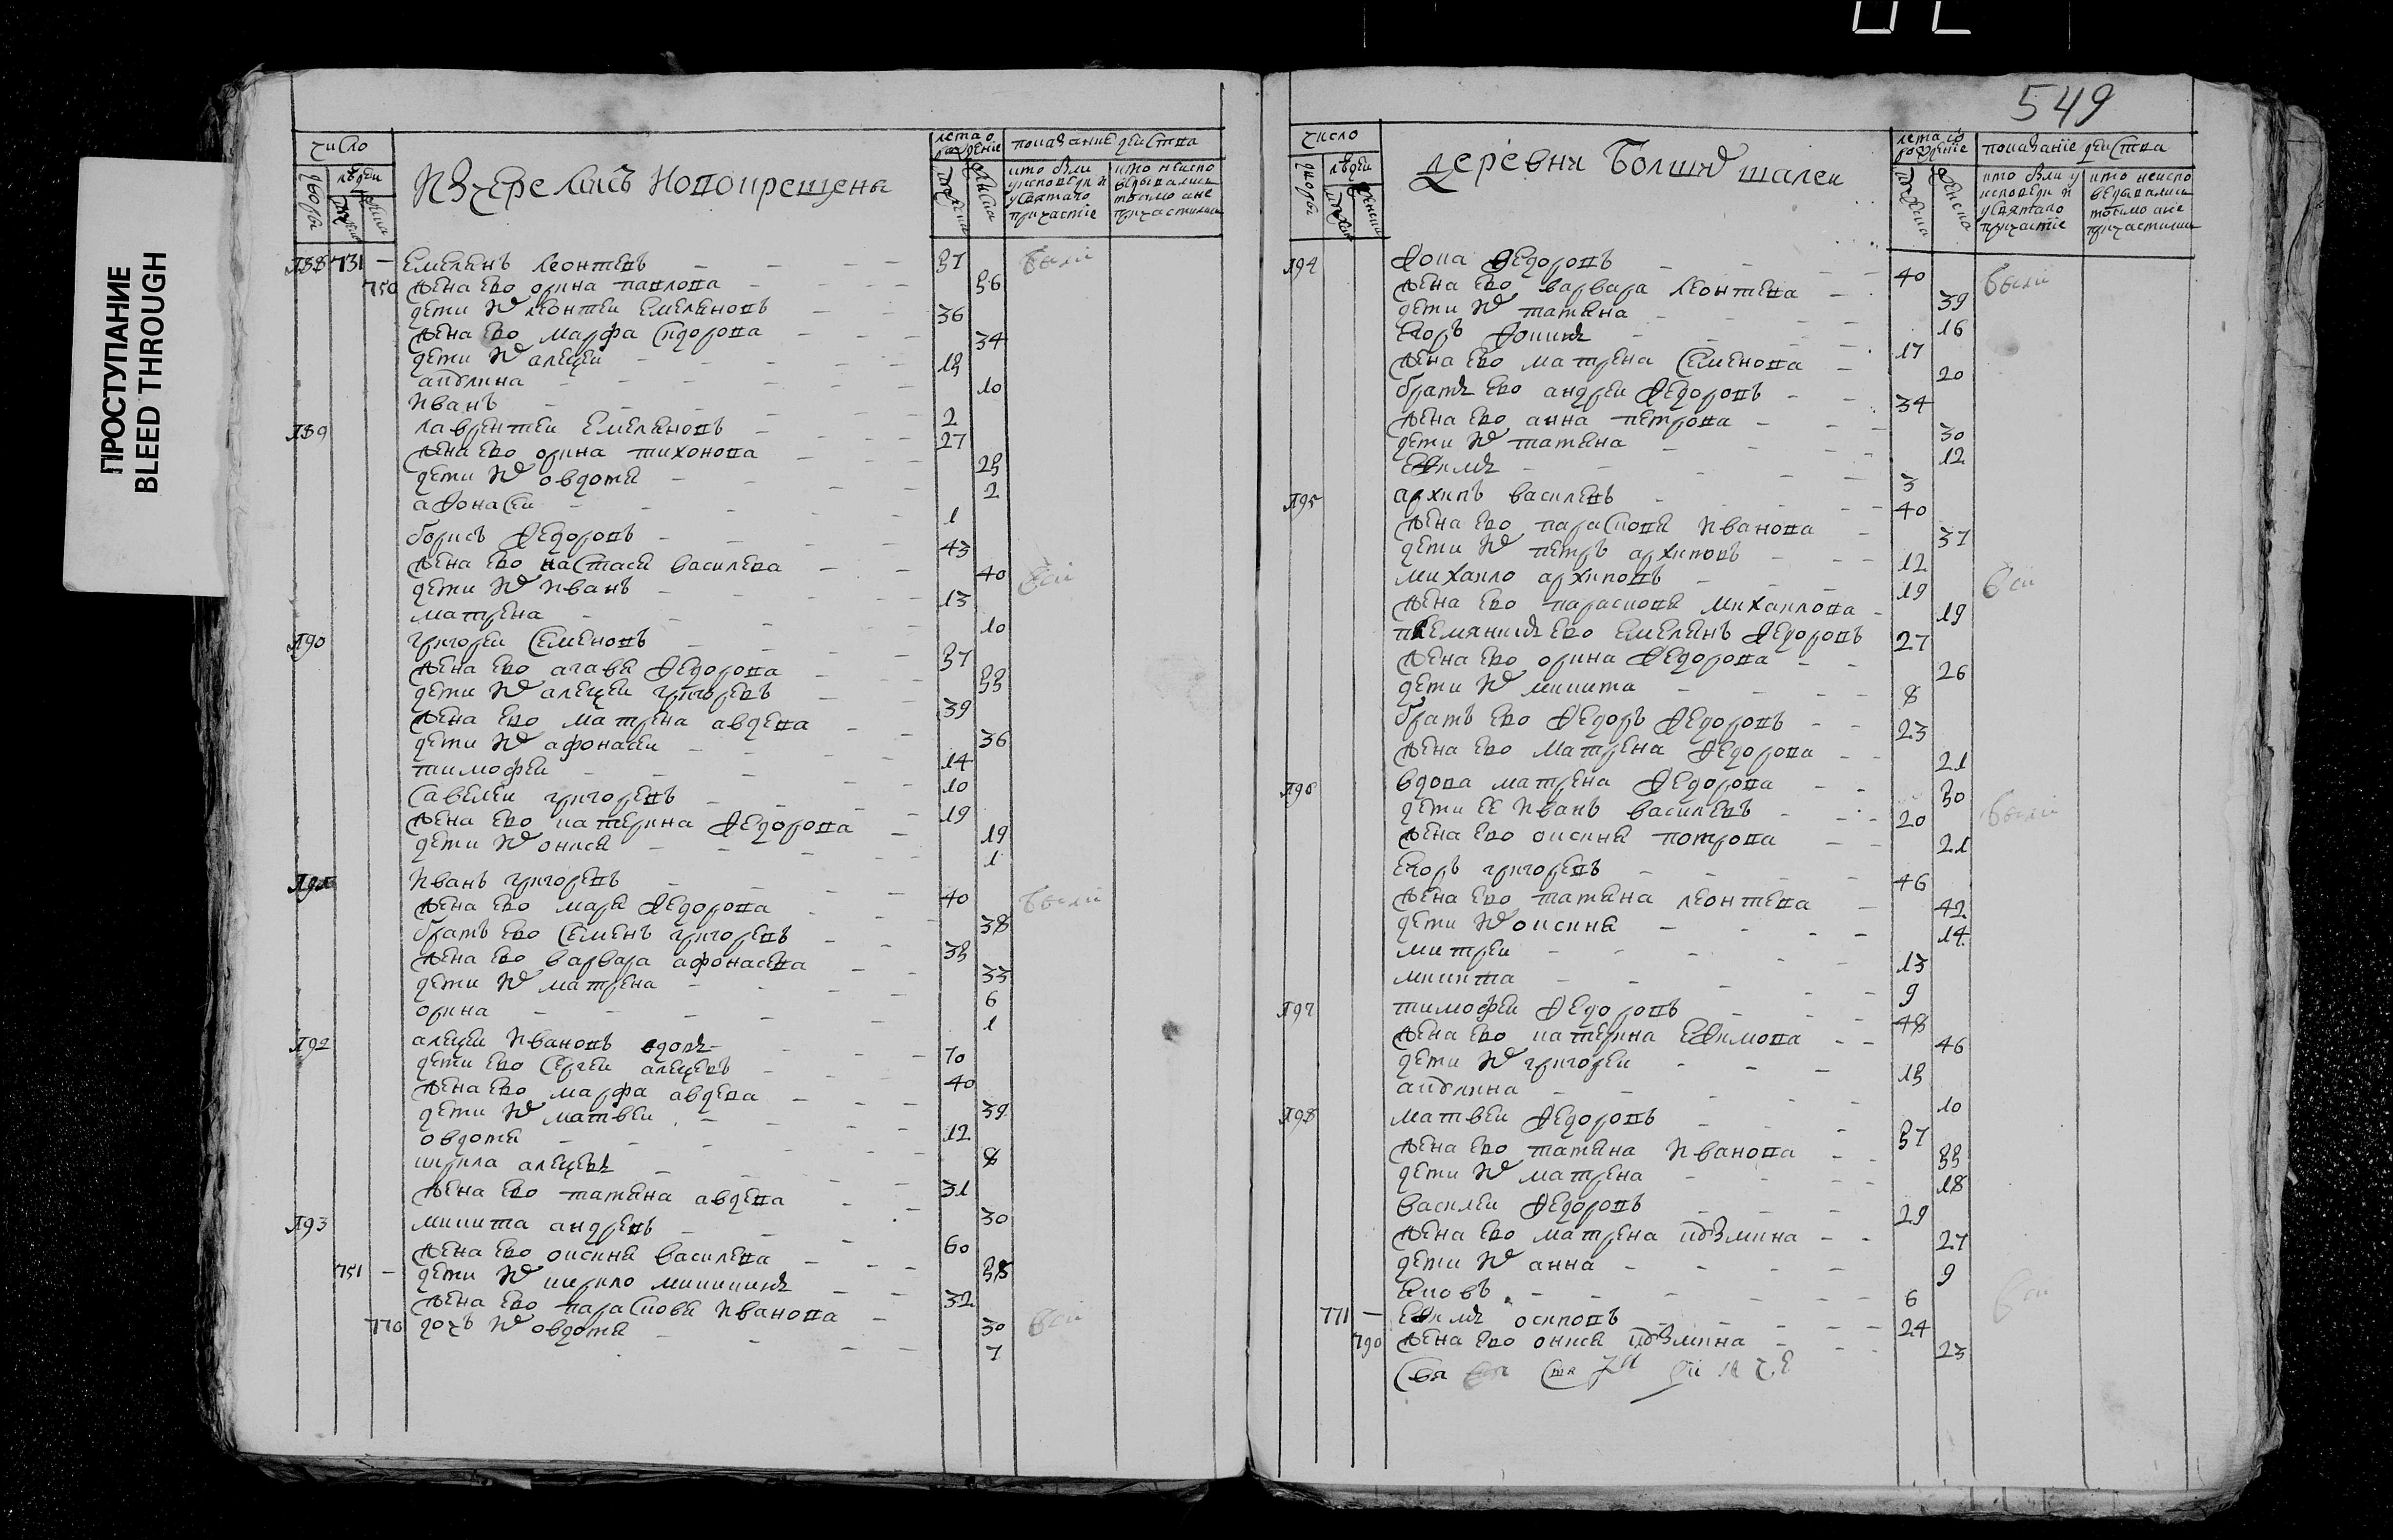 ПРОСТУПАНИЕ
BLEED THROUGH
549
число
двороы
людеи
мужеска
женска
Из черемисъ новокрещены
лета о рождение
мужеска
женска
показание деиства
кто были у исповеди и у святаго причастіе
кто неиспо ведывались токмо и не причастились
188 731 — Емелянъ леонтевъ 57 были
750 жена ево орина павлова 56
дети их леонтеи Емеляновъ 36
жена ево марфа сидорова 34
дети их алеѯеи 15
акулина 10
иванъ 2
189 лаврентеи Емеляновъ 27
жена ево орина тихонова 25
дети их овдотя 2
афонасеи 1
борисъ федоровъ 43
жена ево настася василева 40
дети их иванъ 13
матрена 10
190 григореи семеновъ 57
жена ево агавя федорова 55
дети их алеѯеи григоревъ 39
жена ево матрена авдева 36
дети их афонасеи 14
тимофеи 10
савелеи григоревъ 19
жена ево катерина федорова 19
дети их онися 1
191 иванъ григоревъ 40 были
жена ево маря федорова 38
братъ ево семенъ григоревъ 35
жена ево варвара афонасева 33
дети их матрена 6
орина 1
192 алеѯеи ивановъ вдовъ 70
дети ево сергеи алеѯевъ 40
жена ево марфа авдева 39
дети их матвеи 12
овдотя 8
кирила алеѯевъ 31
жена ево татяна авдева 30
193 микита андревъ 60
жена ево оксиня василева 58
751 — дети их кирило микитинъ 32
жена ево парасковя иванова 30
770 дочъ их овдотя 7
число
дворы
людеи
мужеска
женска
деревни Болших шалеи
лета от рождение
мужеска
женска
показаніе деиства
кто были у исповеди и у святаго причастіе
кто неиспо ведывались токмо и не причастились
194 фока федоровъ 40 были
жена ево варвара леонтева 39
дети их татяна 16
Егоръ фокинъ 17
жена ево матрена семенова 20
братъ ево андреи федоровъ 34
жена ево анна петрова 30
дети их татяна 12
Ефимъ 3
195 архипъ василевъ 40
жена ево парасковя иванова 37
дети их петръ архиповъ 12
михаило архиповъ 19
жена ево парасковя михаилова 19
племяникъ ево Емелянъ федоровъ 27
жена ево орина федорова 26
дети их микита 8
братъ ево федоръ федоровъ 23
жена ево матрена федорова 21
196 вдова матрена федорова 50
дети ее иванъ василевъ 20 были
жена ево оксиня потрова 21
Егоръ григоревъ 46
жена ево татяна леонтева 42
дети их оксиня 14
митреи 13
микита 9
197 тимофеи федоровъ 48
жена ево катерина Ефимова 46
дети их григореи 15
акулина 10
198 матвеи федоровъ 57
жена ево татяна иванова 55
дети их матрена 18
василеи федоровъ 29
жена ево матрена кузмина 27
дети их анна 9
яковъ 6
771 — Ефимъ осиповъ 24
790 жена ево онися кузмина 23